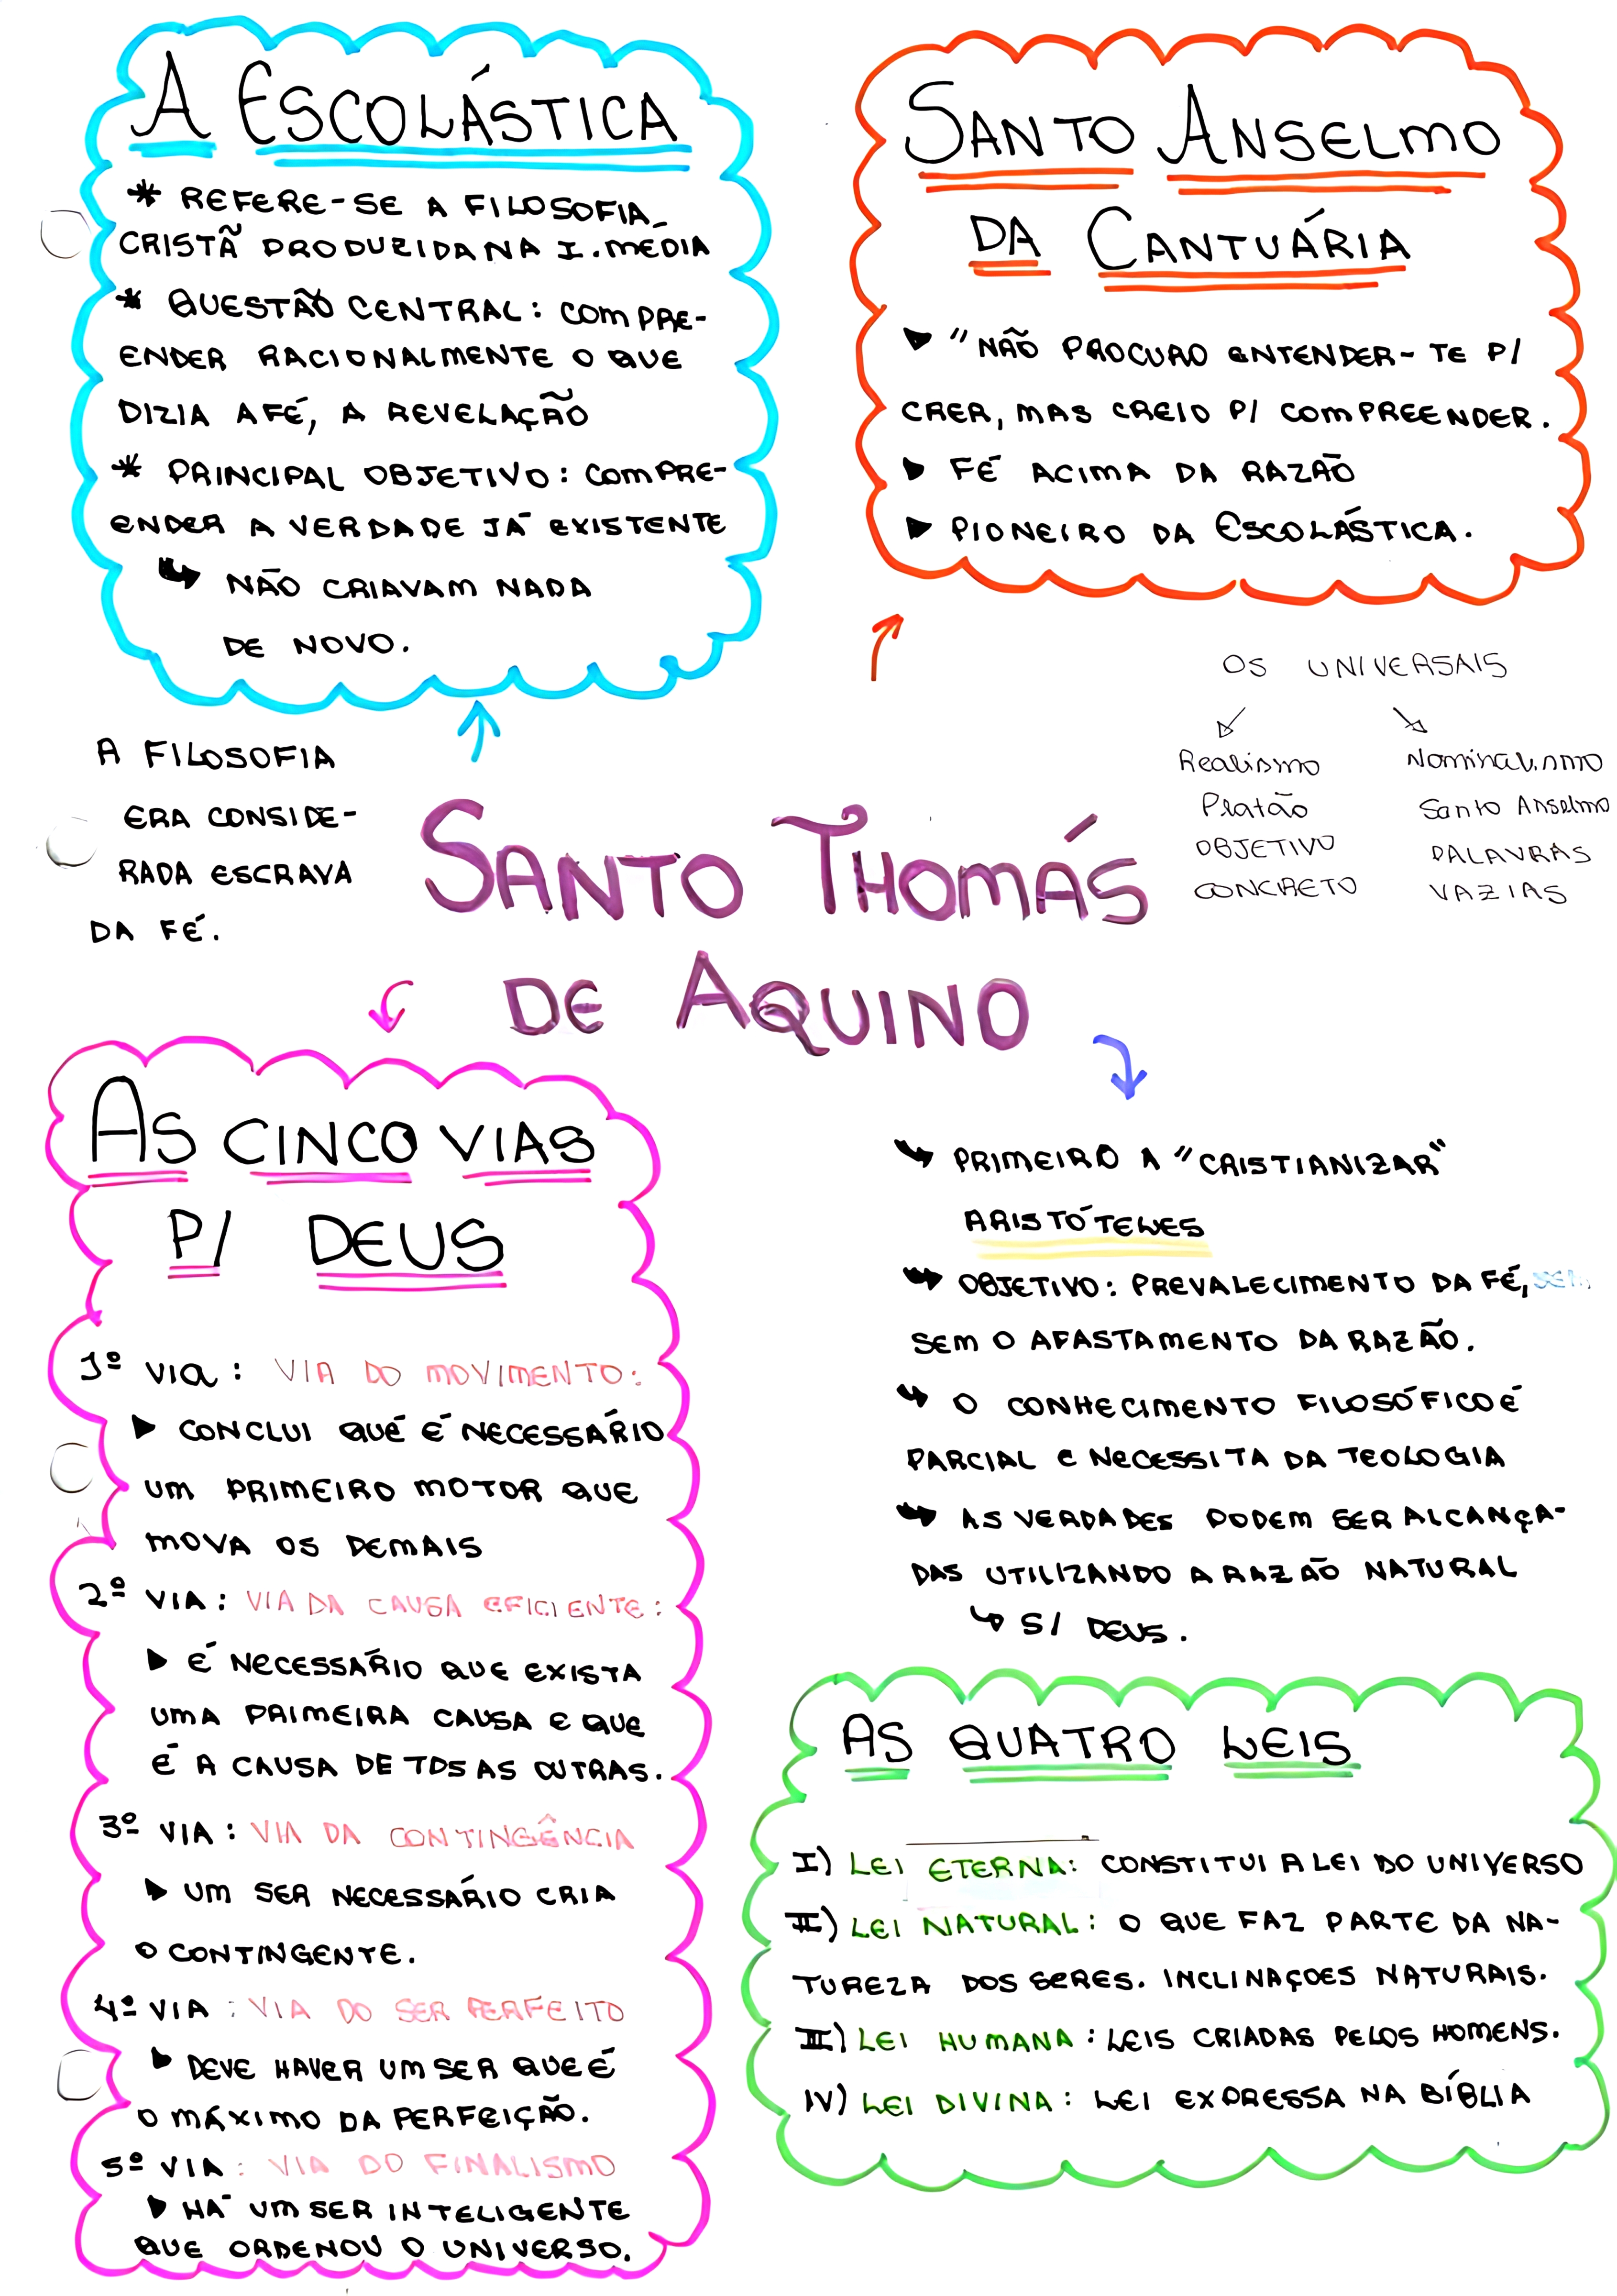 A ESCOLÁSTICA
* REFERE-SE A FILOSOFIA
CRISTÃ PRODUZIDA NA I. MÉDIA
* QUESTÃO CENTRAL: COMPRE-
ENDER RACIONALMENTE O QUE
DIZIA A FÉ, A REVELAÇÃO
* PRINCIPAL OBJETIVO: COMPRE-
ENDER A VERDADE JÁ EXISTENTE
↳ NÃO CRIAVAM NADA
DE NOVO.
SANTO ANSELMO
DA CANTUÁRIA
▶ "NÃO PROCURO ENTENDER-TE P/
CRER, MAS CREIO P/ COMPREENDER.
▶ FÉ ACIMA DA RAZÃO
▶ PIONEIRO DA ESCOLÁSTICA.
A FILOSOFIA
ERA CONSIDE-
RADA ESCRAVA
DA FÉ.
OS UNIVERSAIS
Realismo
Platão
OBJETIVO
CONCRETO
Nominalismo
Santo Anselmo
PALAVRAS
VAZIAS
SANTO THOMÁS
DE AQUINO
AS CINCO VIAS
P/ DEUS
1º VIA: VIA DO MOVIMENTO:
▶ CONCLUI QUÉ É NECESSÁRIO
UM PRIMEIRO MOTOR QUE
MOVA OS DEMAIS
2º VIA: VIA DA CAUSA EFICIENTE:
▶ É NECESSÁRIO QUE EXISTA
UMA PRIMEIRA CAUSA E QUE
É A CAUSA DE TDS AS OUTRAS.
3º VIA: VIA DA CONTINGÊNCIA
▶ UM SER NECESSÁRIO CRIA
O CONTINGENTE.
4º VIA: VIA DO SER PERFEITO
▶ DEVE HAVER UM SER QUE É
O MÁXIMO DA PERFEIÇÃO.
5º VIA: VIA DO FINALISMO
▶ HÁ UM SER INTELIGENTE
QUE ORDENOU O UNIVERSO.
↳ PRIMEIRO A "CRISTIANIZAR"
ARISTÓTELES
↳ OBJETIVO: PREVALECIMENTO DA FÉ, SEM
SEM O AFASTAMENTO DA RAZÃO.
↳ O CONHECIMENTO FILOSÓFICO É
PARCIAL E NECESSITA DA TEOLOGIA
↳ AS VERDADES PODEM SER ALCANÇA-
DAS UTILIZANDO A RAZÃO NATURAL
↳ S/ DEUS.
AS QUATRO LEIS
I) LEI ETERNA: CONSTITUI A LEI DO UNIVERSO
II) LEI NATURAL: O QUE FAZ PARTE DA NA-
TUREZA DOS SERES. INCLINAÇOES NATURAIS.
III) LEI HUMANA: LEIS CRIADAS PELOS HOMENS.
IV) LEI DIVINA: LEI EXPRESSA NA BÍBLIA